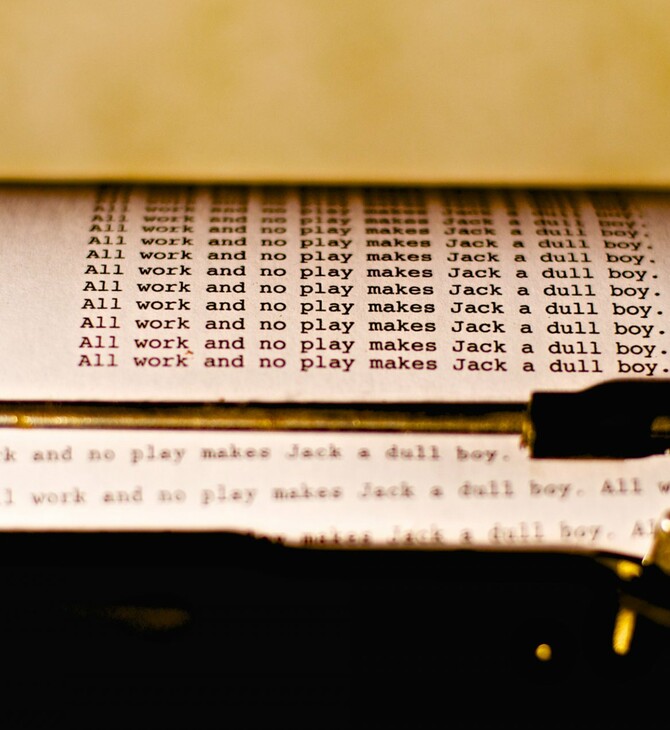 All work and no play makes Jack a dull boy.
All work and no play makes Jack a dull boy.
All work and no play makes Jack a dull boy.
All work and no play makes Jack a dull boy.
All work and no play makes Jack a dull boy.
All work and no play makes Jack a dull boy.
All work and no play makes Jack a dull boy.
All work and no play makes Jack a dull boy.
All work and no play makes Jack a dull boy.
All work and no play makes Jack a dull boy.
and no play makes Jack a dull boy.
work and no play makes Jack a dull boy. All
makes Jack a dull boy.